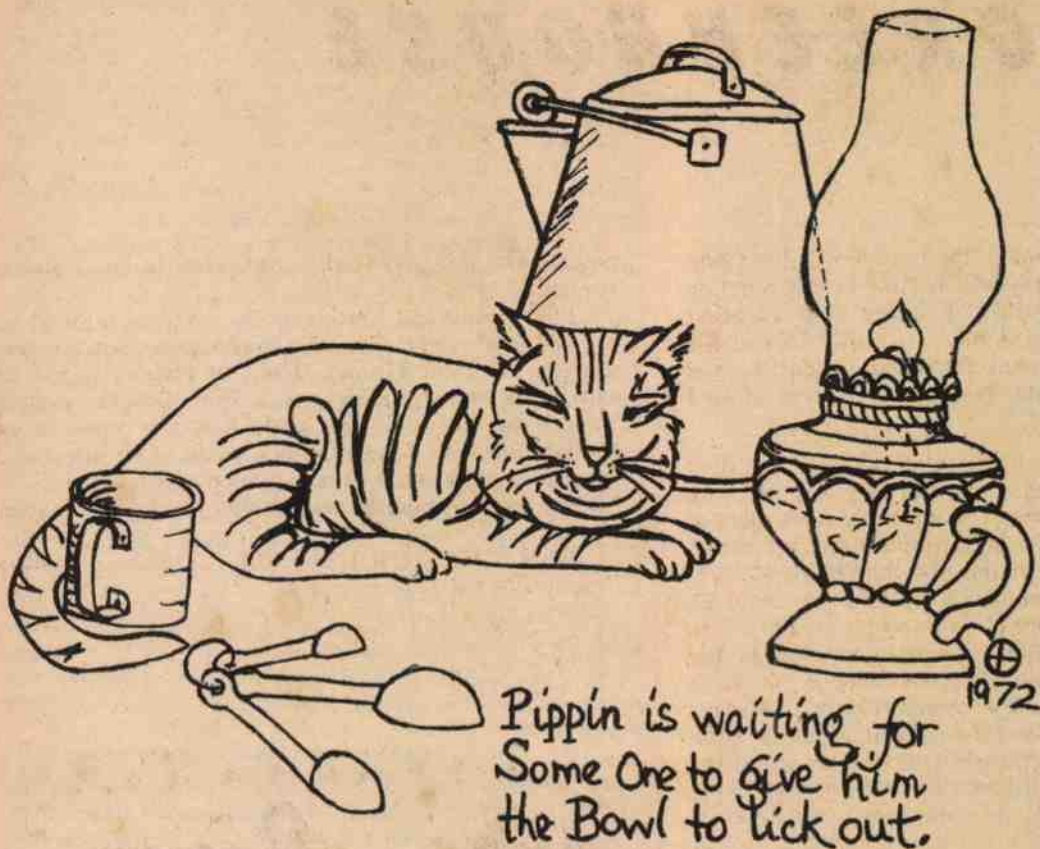 1972
Pippin is waiting for
Some One to give him
the Bowl to lick out.